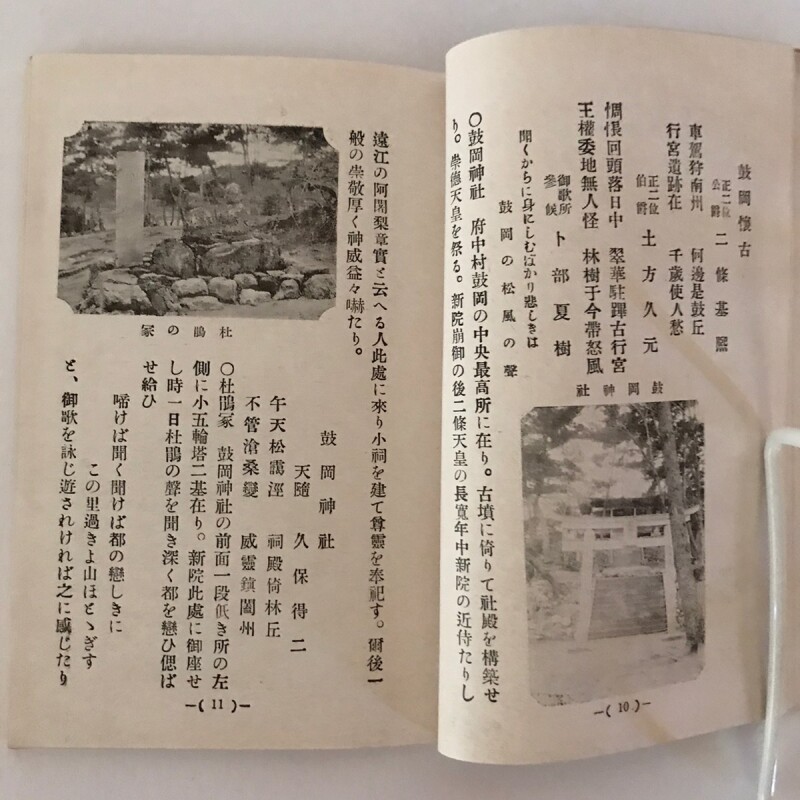 鼓岡懷古
正二位
公爵 二條基熙
車駕狩南州 何邊是鼓丘
行宮遺跡在 千歲使人愁
正二位
伯爵 土方久元
惆悵回頭落日中 翠華駐蹕古行宮
王權委地無人怪 林樹于今帶怒風
御歌所
參候 卜部夏樹
聞くからに身にしむばかり悲しきは
鼓岡の松風の聲
〇鼓岡神社 府中村鼓岡の中央最高所に在り。古墳に倚りて社殿を構築せ
り。崇德天皇を祭る。新院崩御の後二條天皇の長寬年中新院の近侍たりし
鼓岡神社
—( 10 )—
遠江の阿闍梨章實と云へる人此處に來り小祠を建て尊靈を奉祀す。爾後一
般の崇敬厚く神威益々嚇たり。
杜鵑の冢
鼓岡神社
天隨 久保得二
午天松靄溼 祠殿倚林丘
不管滄桑變 威靈鎮闔州
〇杜鵑冢 鼓岡神社の前面一段低き所の左
側に小五輪塔二基在り。新院此處に御座せ
し時一日杜鵑の聲を聞き深く都を戀ひ偲ば
せ給ひ
啼けば聞く聞けば都の戀しきに
この里過きよ山ほとゝぎす
と、御歌を詠じ遊されければ之に感じたり
—( 11 )—